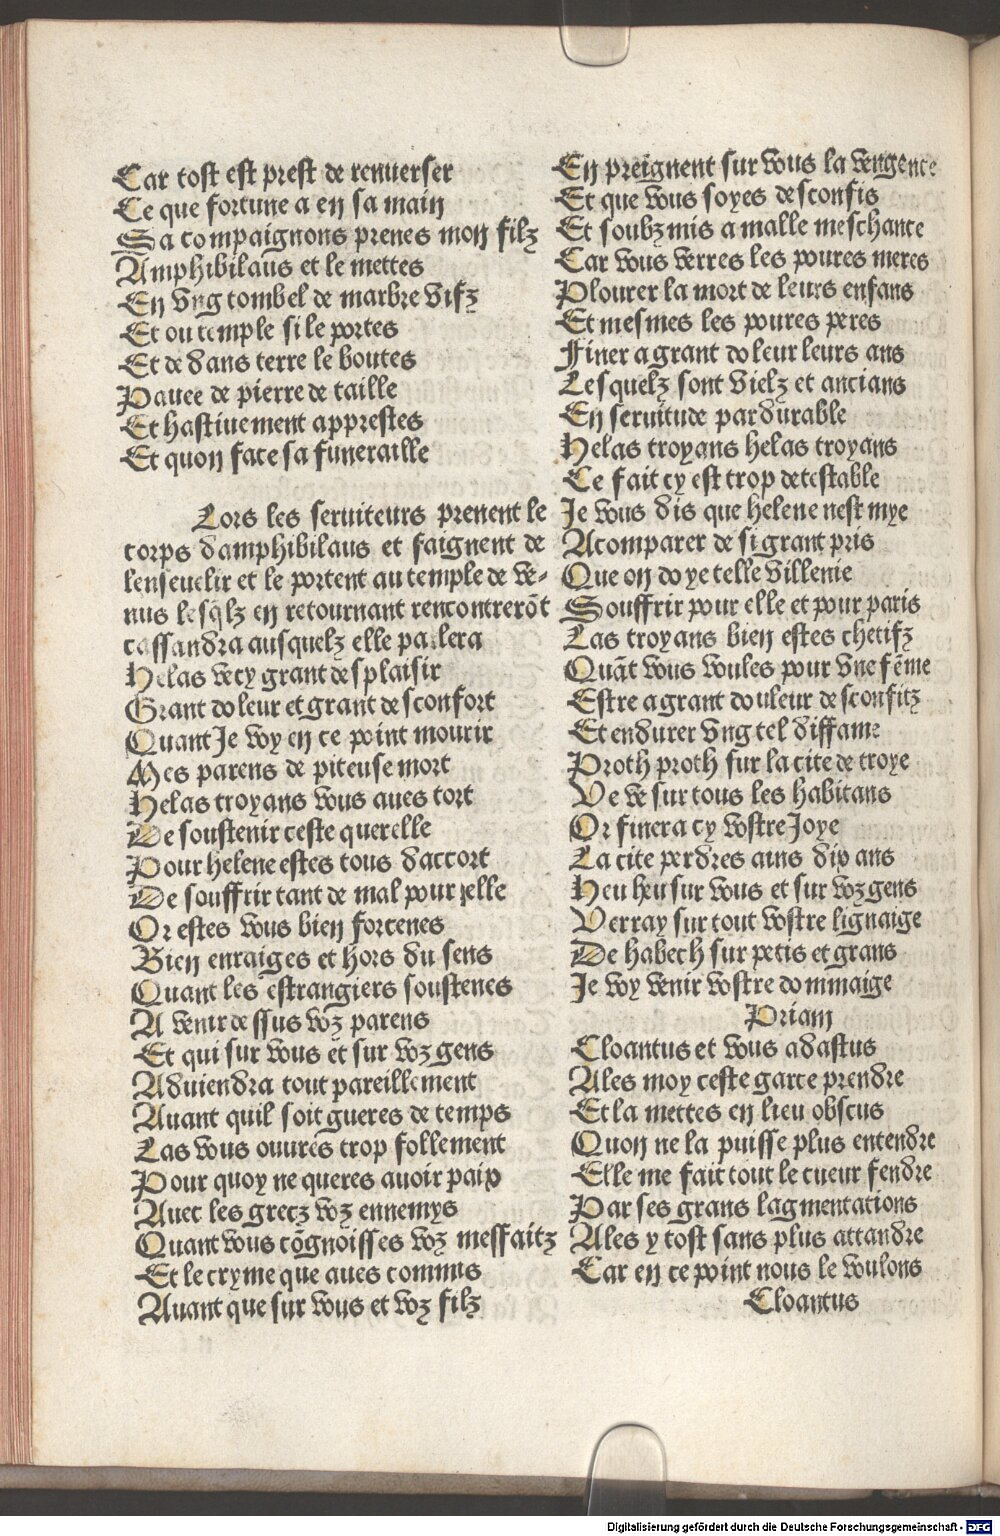 Car tost est prest de renuerser
Ce que fortune a en sa main
Sa compaignons prenes mon filz
Amphibilaus et le mettes
En vng tombel de marbre vifz
Et ou temple si le portes
Et dedans terre le boutes
Pauee de pierre de taille
Et hastiuement apprestes
Et quon face sa funeraille
Lors les seruiteurs prenent le
corps damphibilaus et faignent de
lenseuelir et le portent au temple de ve-
nus lesq̃lz en retournant rencontrerõt
cassandra ausquelz elle parlera
Helas vecy grant desplaisir
Grant doleur et grant desconfort
Quant Je voy en ce point mourir
Mes parens de piteuse mort
Helas troyans vous aues tort
De soustenir ceste querelle
Pour helene estes tous daccort
De souffrir tant de mal pour zelle
Or estes vous bien forcenes
Bien enraiges et hors du sens
Quant les estrangiers soustenes
A venir dessus voz parens
Et qui sur vous et sur voz gens
Aduiendra tout pareillement
Auant quil soit gueres de temps
Las vous ouures trop follement
Pour quoy ne queres auoir paix
Auec les grecz voz ennemys
Quant vous cõgnoisses voz messfaitz
Et le cryme que aues commis
Auant que sur vous et voz filz
En preignent sur vous la vengence
Et que vous soyes desconfis
Et soubzmis a malle meschance
Car vous verres les poures meres
Plourer la mort de leurs enfans
Et mesmes les poures peres
Finer a grant doleur leurs ans
Lesquelz sont vielz et ancians
En seruitude pardurable
Helas troyans helas troyans
Ce fait cy est trop detestable
Je vous dis que helene nest mye
Acomparer de si grant pris
Que on doye telle villenie
Souffrir pour elle et pour paris
Las troyans bien estes chetifz
Quãt vous voules pour vne fẽme
Estre a grant douleur desconfitz
Et endurer vng tel diffame
Proth proth sur la cite de troye
Ve ve sur tous les habitans
Or finera cy vostre Joye
La cite perdres ains dix ans
Heu heu sur vous et sur voz gens
Verray sur tout vostre lignaige
De habech sur petis et grans
Je voy venir vostre dommaige
Priam
Cloantus et vous adastus
Ales moy ceste garce prendre
Et la mettes en lieu obscus
Quon ne la puisse plus entendre
Elle me fait tout le cueur fendre
Par ses grans lagmentations
Ales y tost sans plus attandre
Car en ce point nous le voulons
Cloantus
Digitalisierung gefördert durch die Deutsche Forschungsgemeinschaft - DFG